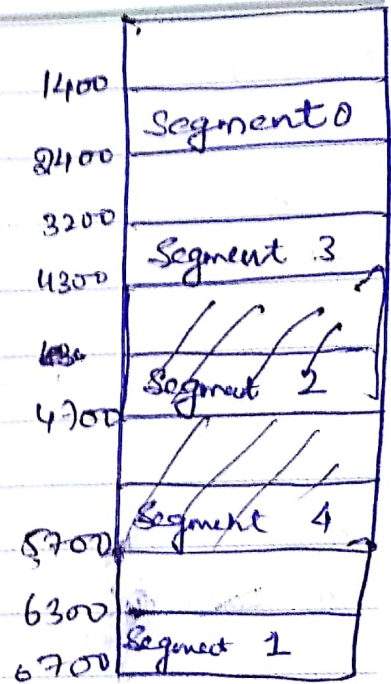 1400
Segment 0
2400
3200
Segment 3
4300
Segment 2
4700
Segment 4
5700
6300
Segment 1
6700